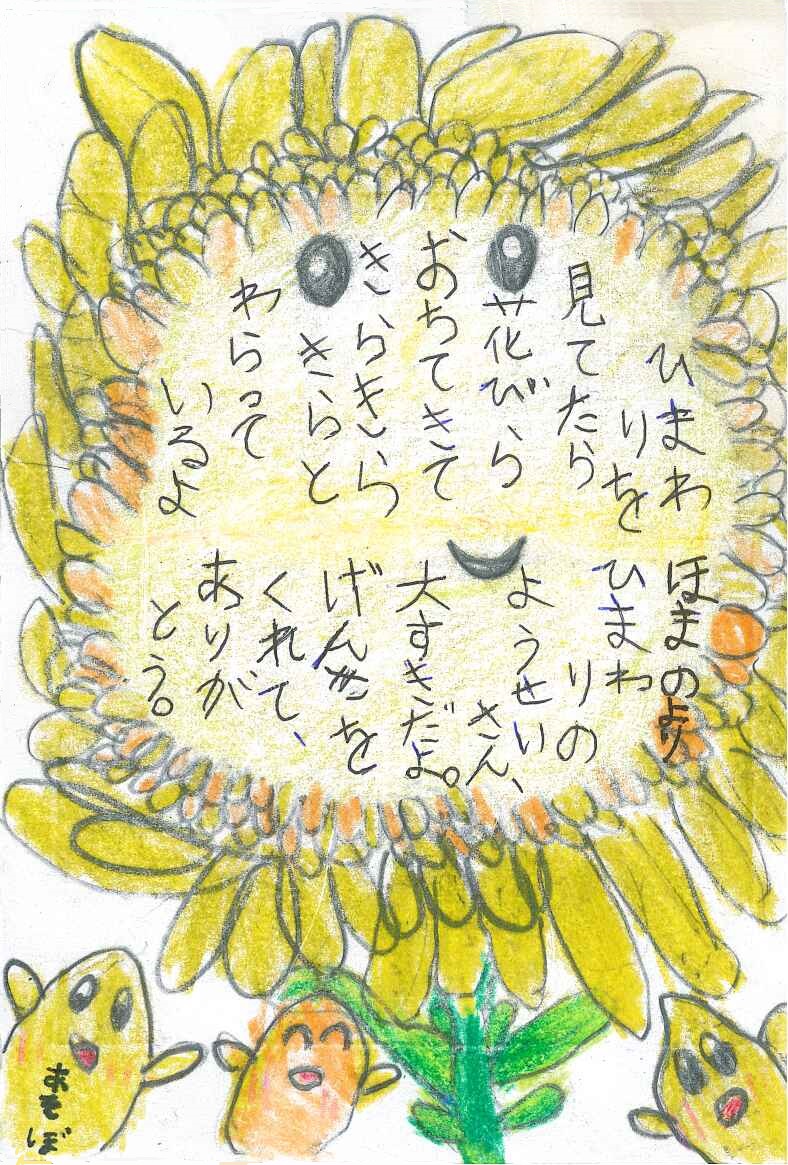 ひまわ
りを
見てたら
花びら
おちてきて
きらきら
きらと
わらって
いるよ
ほまのより
ひまわ
りの
ようせい
さん、
大すきだよ。
げん気を
くれて、
ありが
とう。
あそ
ぼ